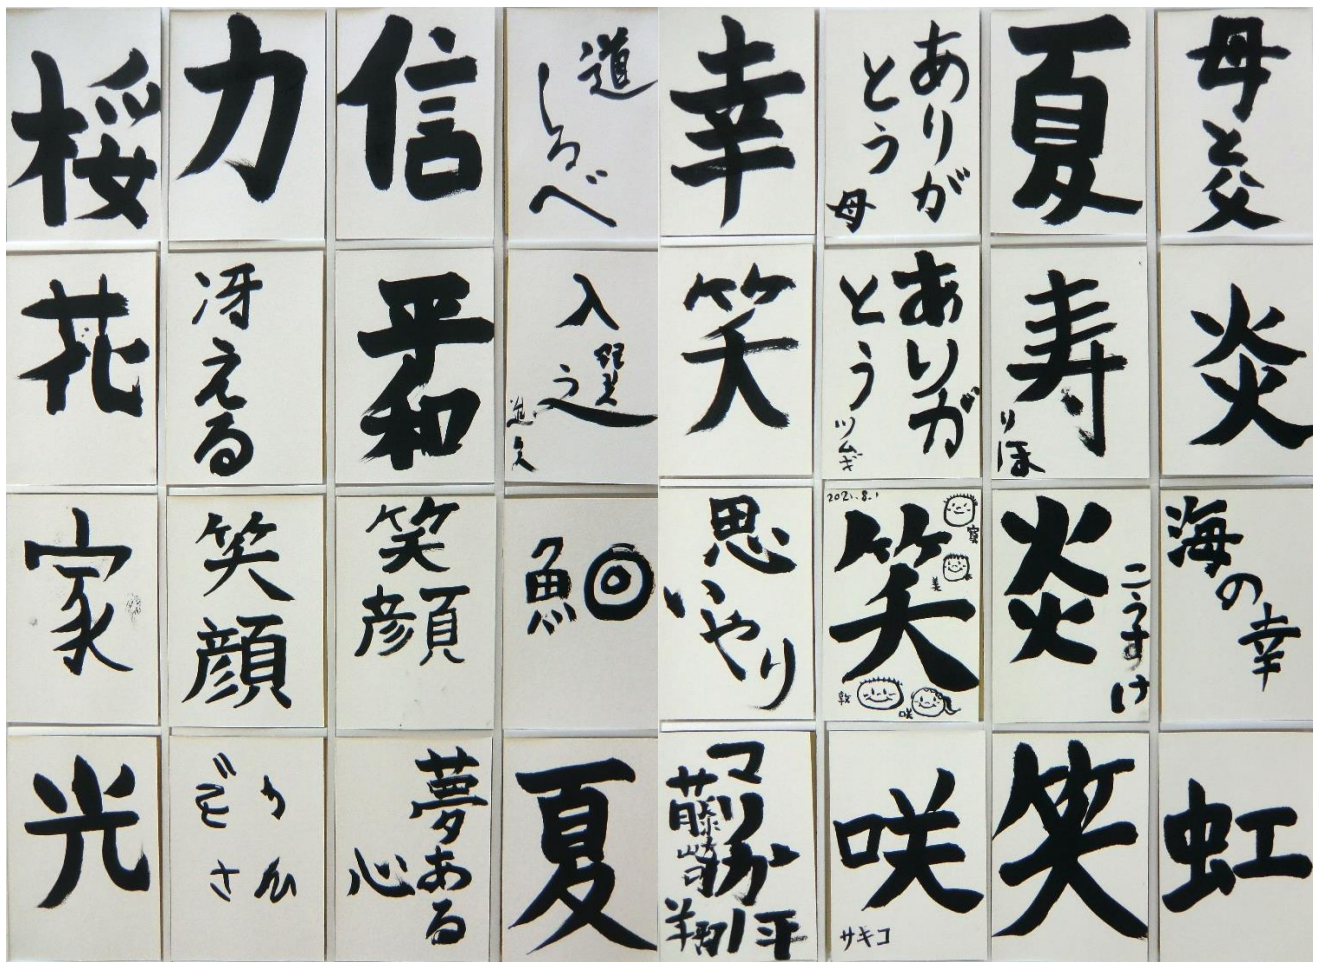 桜
力
信
道
しるべ
幸
ありが
とう
母
夏
母と父
花
冴える
平和
入選
う
進久
笑
ありが
とう
ツムギ
寿
りほ
炎
家
笑顔
笑
顔
魚
思
いやり
2021.8.1
笑
寛
美
敦
咲
炎
こうすけ
海の
幸
光
夢ある
心
夏
マリ
藤崎
翔平
咲
サキコ
笑
虹